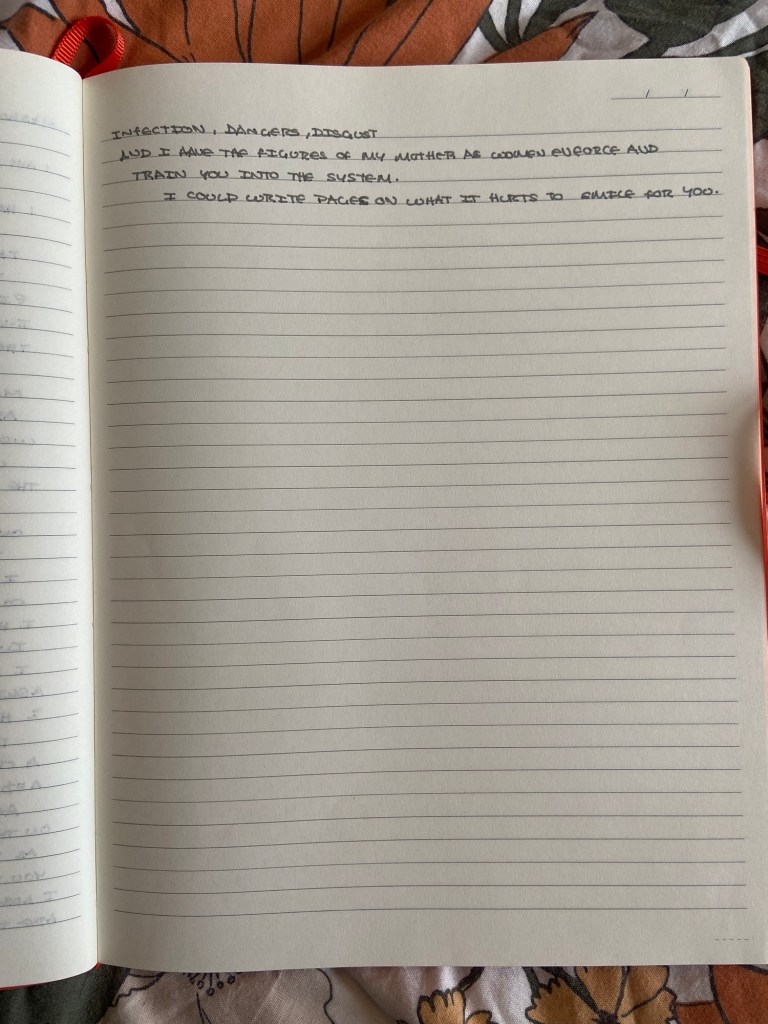 INFECTION, DANGERS, DISGUST
AND I HAVE THE FIGURES OF MY MOTHER AS WOMEN ENFORCE AND
TRAIN YOU INTO THE SYSTEM.
I COULD WRITE PAGES ON WHAT IT HURTS TO SMILE FOR YOU.